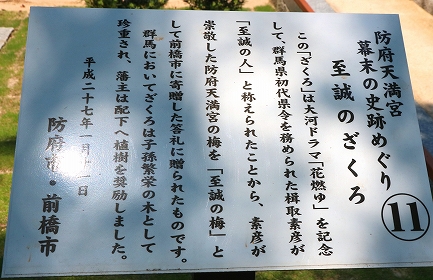 防府天満宮
幕末の史跡めぐり
至誠のざくろ
11
この「ざくろ」は大河ドラマ「花燃ゆ」を記念
して、群馬県初代県令を務められた楫取素彦が
「至誠の人」と称えられたことから、素彦が
崇敬した防府天満宮の梅を「至誠の梅」と
して前橋市に寄贈した答礼に贈られたものです。
群馬においてざくろは子孫繁栄の木として
珍重され、藩主は配下へ植樹を奨励しました。
平成二十七年
防府市・前橋市